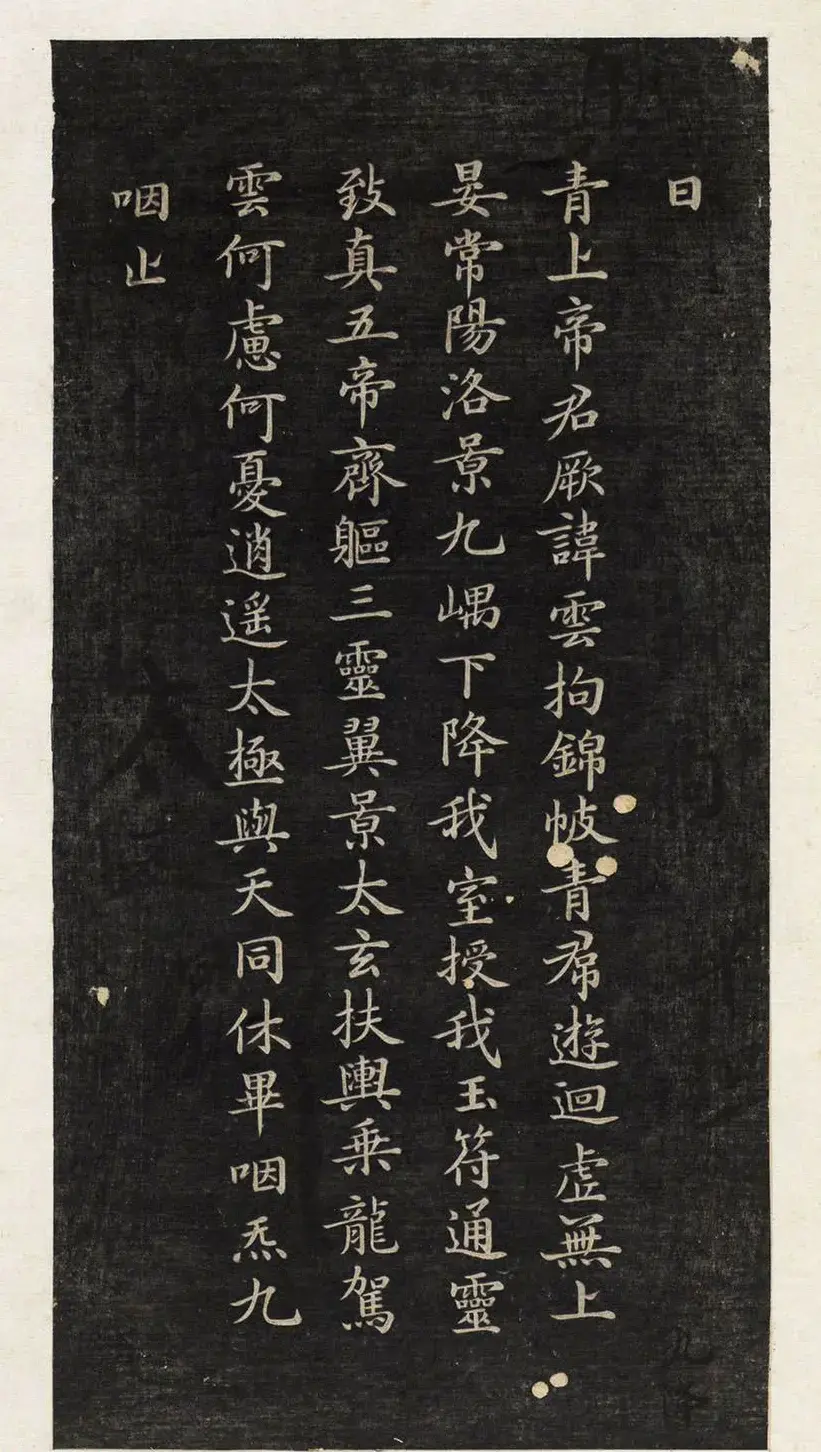 日
青上帝君厥諱雲拘錦帔青帬遊迴虛無上
晏常陽洛景九嵎下降我室授我玉符通靈
致真五帝齊軀三靈翼景太玄扶輿乘龍駕
雲何慮何憂逍遥太極與天同休畢咽炁九
咽止